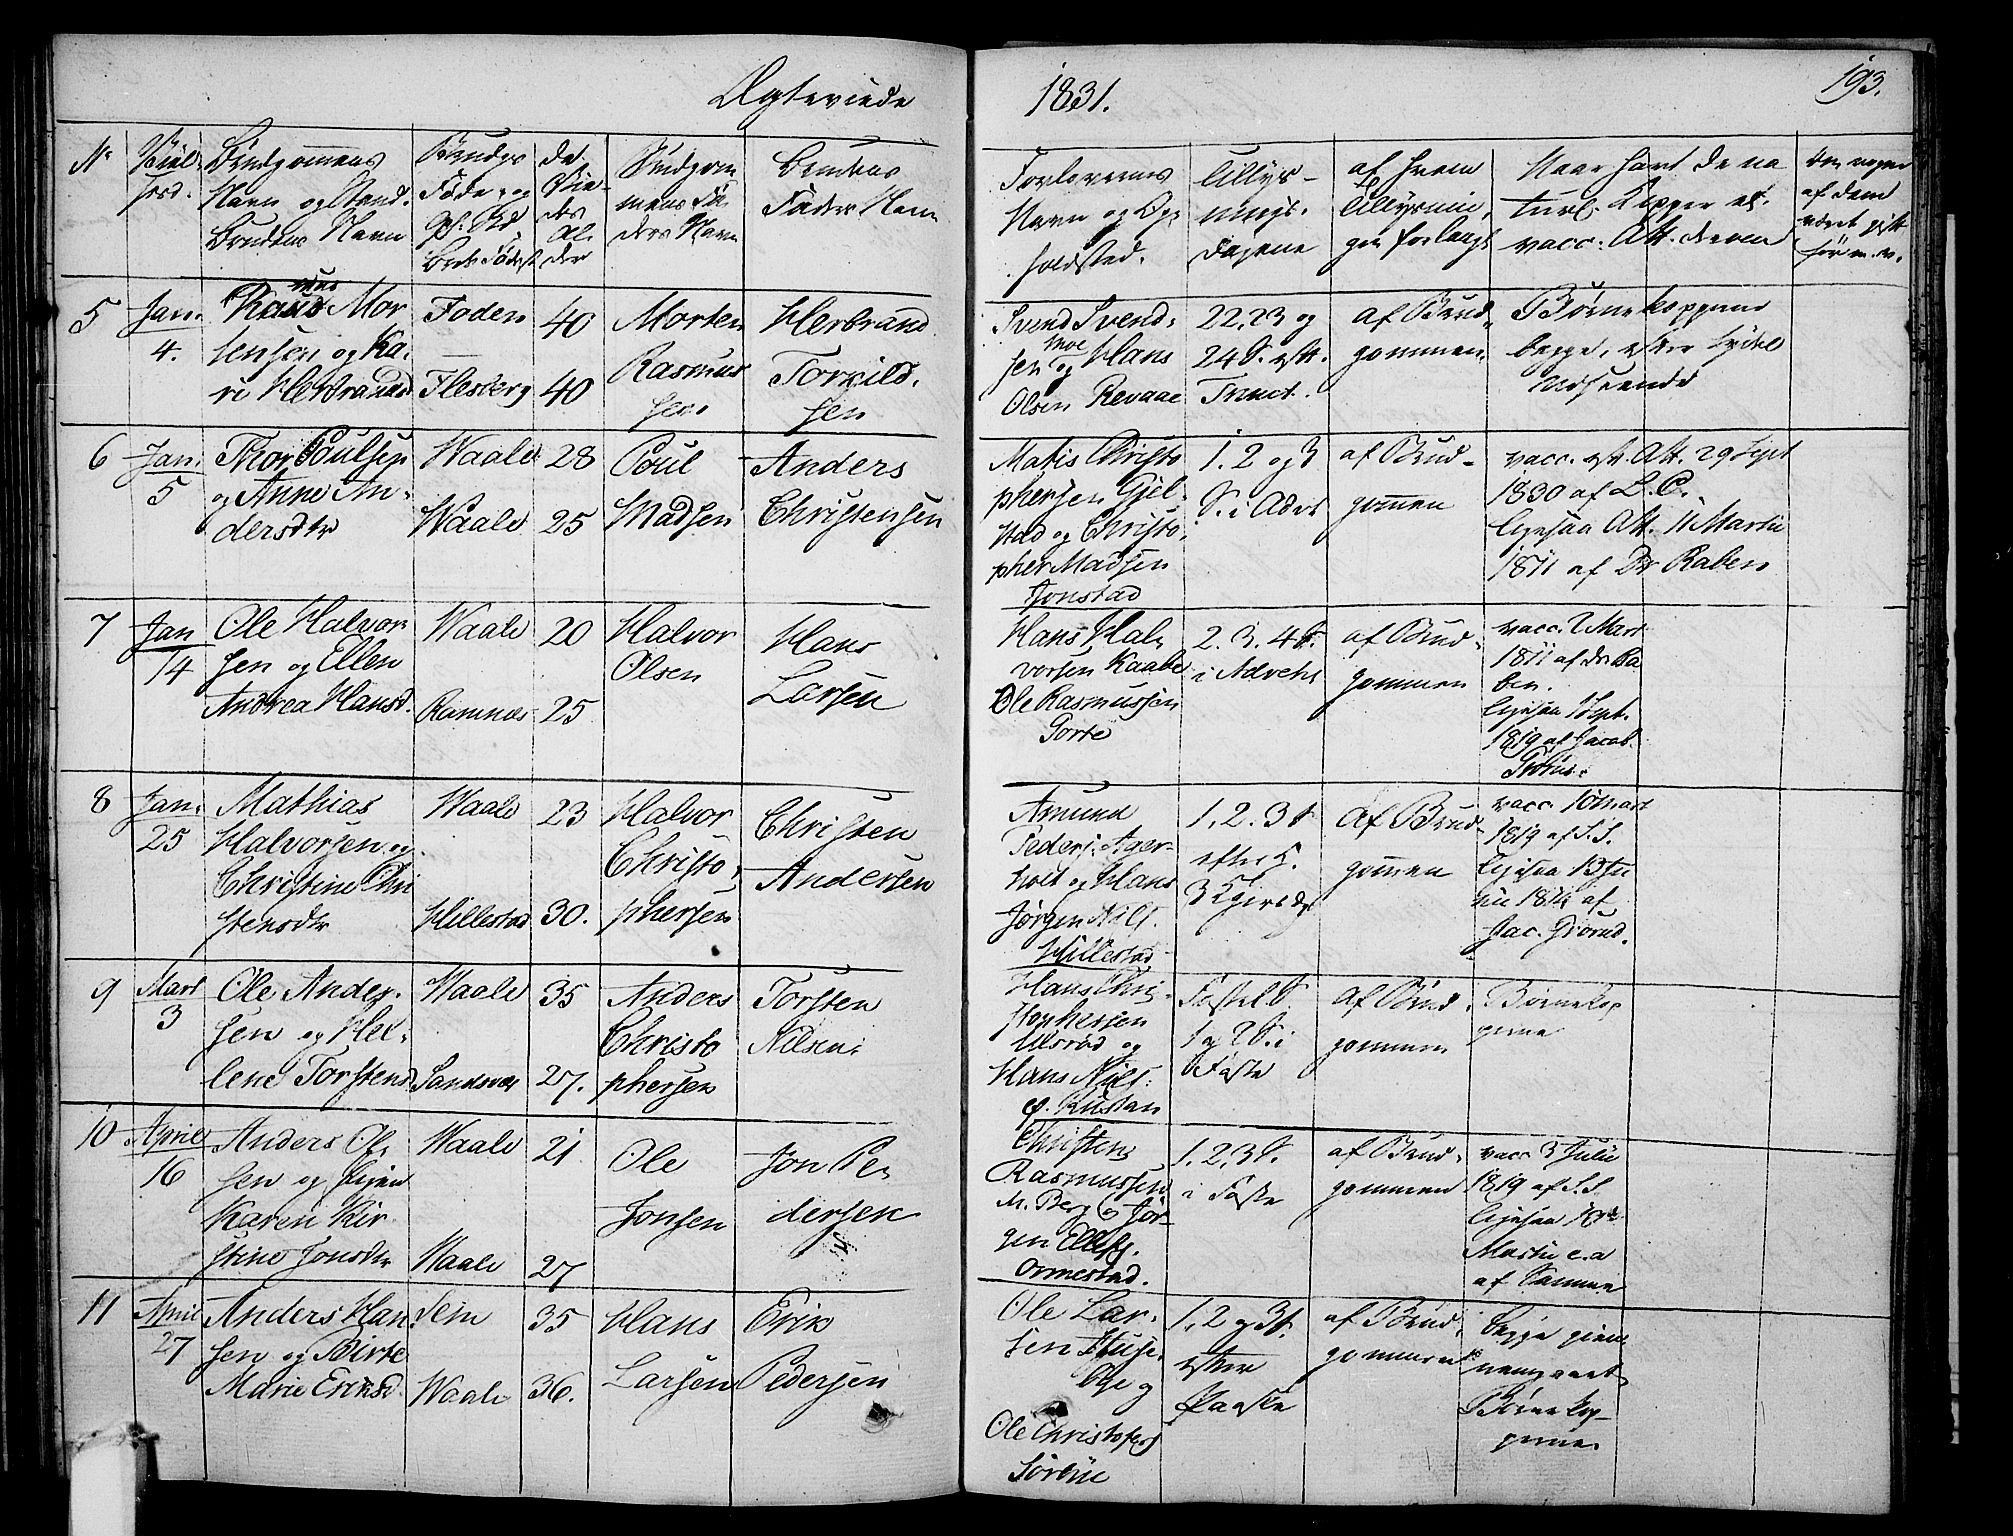 Ægteviede
1831.
193.
No
Viel.
sesd.
Brudgomens
Navn og Stand.
Brudens Navn
Brudgs
Føde og
Brudgom
mens Fa
ders Navn
Brudens
Faders Navn
Forlovernes
Navn og Op-
holdsted.
tillys-
nings-
dagene
af hvem
tillysnin-
gen forlangt
Naar havt de na
turl. Kopper el.
vacc. Att. derom
Om nogen
af dem
været gift
før
5
Jan.
4.
Mor
tensen og Ka-
ri Herbrandsd
Foden
Flesberg
40
40
Morten
Rasmus
sen
Herbrand
Torkild-
sen
Svend Svend-
sen Moe og Hans
Olsen Revaae
22, 23 og
24 S. eft.
Trinit.
af Brud-
gommen
Børnekopperne
begge, efter Sydel
Udseende
6
Jan.
5
Thor Poulsen
og Anne An-
dersdtr
Waale
Waale
28
25
Poul
Madsen
Anders
Christensen
Matis Christo
phersen Gjel-
stad og Christo-
pher Madsen
Jonstad
1. 2 og 3
S. i Advt
af Brud-
gomen
vacc. eft. Att. 29 Sept
1830 af L. C.
ligesaa Att. 11 Martii
1811 af Dr Raben
7
Jan
14
Ole Halvor
sen og Ellen
Andrea Hansd.
Waale
Ramnæs
20
25
Halvor
Olsen
Hans
Larsen
Hans Hal-
vorsen Kaabe
Ole Rasmussen
Gorte
2. 3. 4 S.
i Advent
af Brud-
gommen
vacc. 2 Mart
1811 af Dr Ra
ben.
ligesaa 1 Sept.
1819 af Jacob
8
Jan.
25
Mathias
Halvorsen og
Christine Chri
stensdtr
Waale
Hillestad
23
30.
Halvor
Christo-
phersen
Christen
Andersen
Amund
Peders. Ager-
holt og Hans
Jørgen Nils.
Hillestad
1. 2. 3 S
efter H.
3 Kgersdg
af Brud-
gomen
vacc. 10 Mart
1819 af S.S.
ligesaa 13 Ju
nii 1814 af
Jac. Grorud.
9
Mart
3
Ole Ander-
sen og Hel-
lene Torstensd
Waale
Sandsvær
35
27.
Anders
Christo
phersen
Torsten
Nilsen
Hans Chri-
stophersen
Ulsrød og
Hans Nils.
Ø. Rustan
Fastel. S.
1 og 2 S. i
Faste
af Brud-
gommen
Børnekop
perne
10
April
16
Anders Ol-
sen og Pigen
Karen Kir-
stine Jonsdtr
Waale
Waale
21
27
Ole
Jonsen
Jon Pe-
dersen
Christen
Rasmussen
M. Berg og Jør-
gen Ellefs.
Ormestad.
1. 2. 3 S.
i Faste
af Brud-
gommen
vacc 3 Julii
1819 af S.S.
ligesaa
Martii c. a
af Samme
11
April
27
Anders Han
sen og Birte
Marie Eriksd
Sem
Waale
35
36.
Hans
Larsen
Erik
Pedersen
Ole Lar-
sen Huse-
bye og
Ole Christofers
Sørbye
1. 2 og 3 S.
efter
Paaske
af Brud-
gommen
begge gien
nemgaaet
Børnekop-
perne.